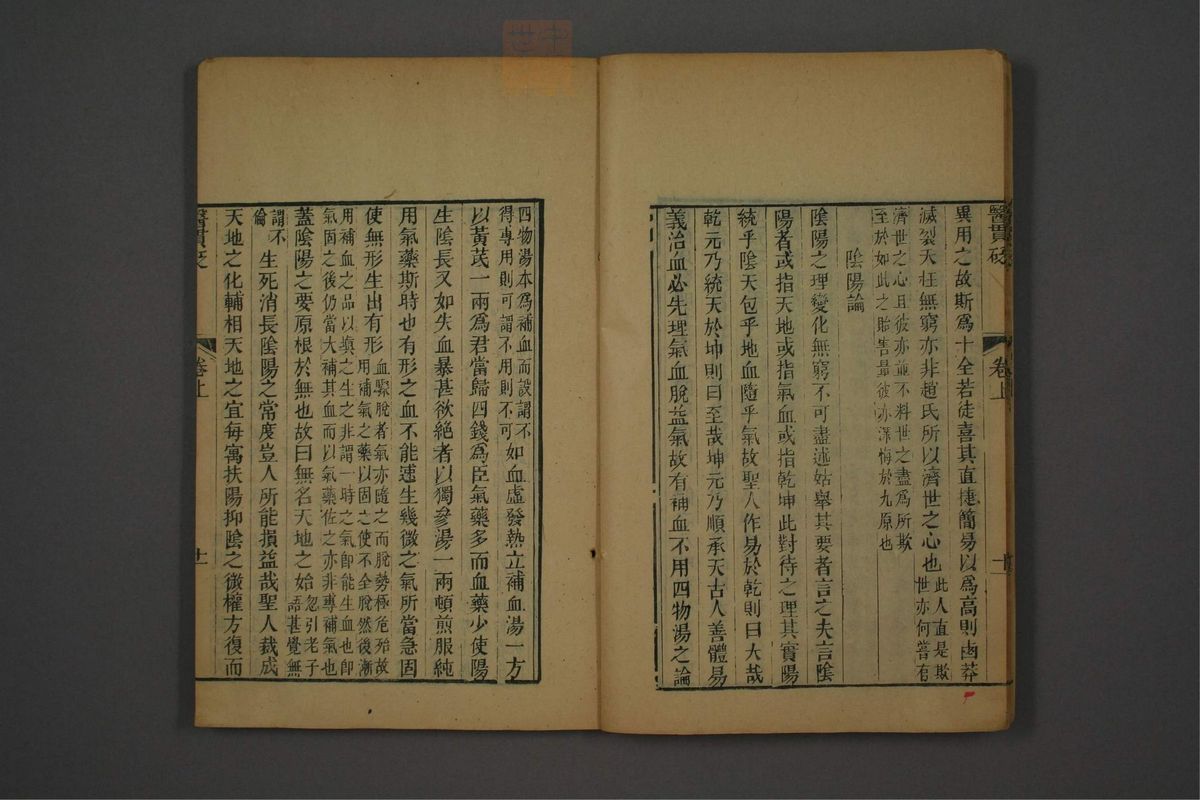 醫貫砭
卷上
十
異用之故斯爲十全若徒喜其直捷簡易以爲高則鹵莽
滅裂夭枉無窮亦非趙氏所以濟世之心也此人直是欺世亦何嘗有
濟世之心且彼亦並不料世之盡爲所欺至於如此之貽害最彼亦深悔於九原也
陰陽論
陰陽之理變化無窮不可盡述姑舉其要者言之夫言陰
陽者或指天地或指氣血或指乾坤此對待之理其實陽
統乎陰天包乎地血隨乎氣故聖人作易於乾則曰大哉
乾元乃統天於坤則曰至哉坤元乃順承天古人善體易
義治血必先理氣血脫益氣故有補血不用四物湯之論
四物湯本爲補血而設謂不得專用則可謂不用則不可如血虛發熱立補血湯一方
以黃芪一兩爲君當歸四錢爲臣氣藥多而血藥少使陽
生陰長又如失血暴甚欲絕者以獨參湯一兩頓煎服純
用氣藥斯時也有形之血不能速生幾微之氣所當急固
使無形生出有形血驟脫者氣亦隨之而脫勢極危殆故用補氣之藥以固之使不全脫然後漸
用補血之品以填之生之非謂一時之氣卽能生血也卽氣固之後仍當大補其血而以氣藥佐之亦非專補氣也
蓋陰陽之要原根於無也故曰無名天地之始忽引老子語甚覺無
謂不倫生死消長陰陽之常度豈人所能損益哉聖人裁成
天地之化輔相天地之宜每寓扶陽抑陰之微權方復而
醫貫砭
卷上
十一